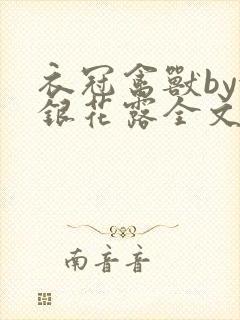 衣冠禽獸by
銀花露全文
南音音